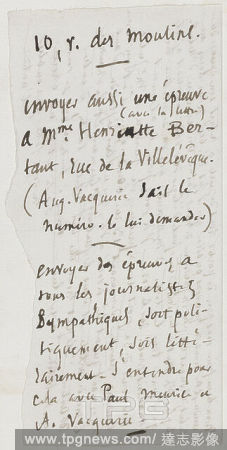 10, r. des moulins.
envoyer aussi une épreuve
(avec la lettre)
a Mme Henriette Ber-
taut, rue de la Villelévêque.
(Aug. Vacquerie sait le
numéro. le lui demander)
envoyer des épreuves a
tous les journalistes
sympathiques, soit poli-
tiquement, soit litté-
rairement. S'entendre pour
cela avec Paul Meurice et
A. Vacquerie
TPG
www.tpgnews.com/達志影像